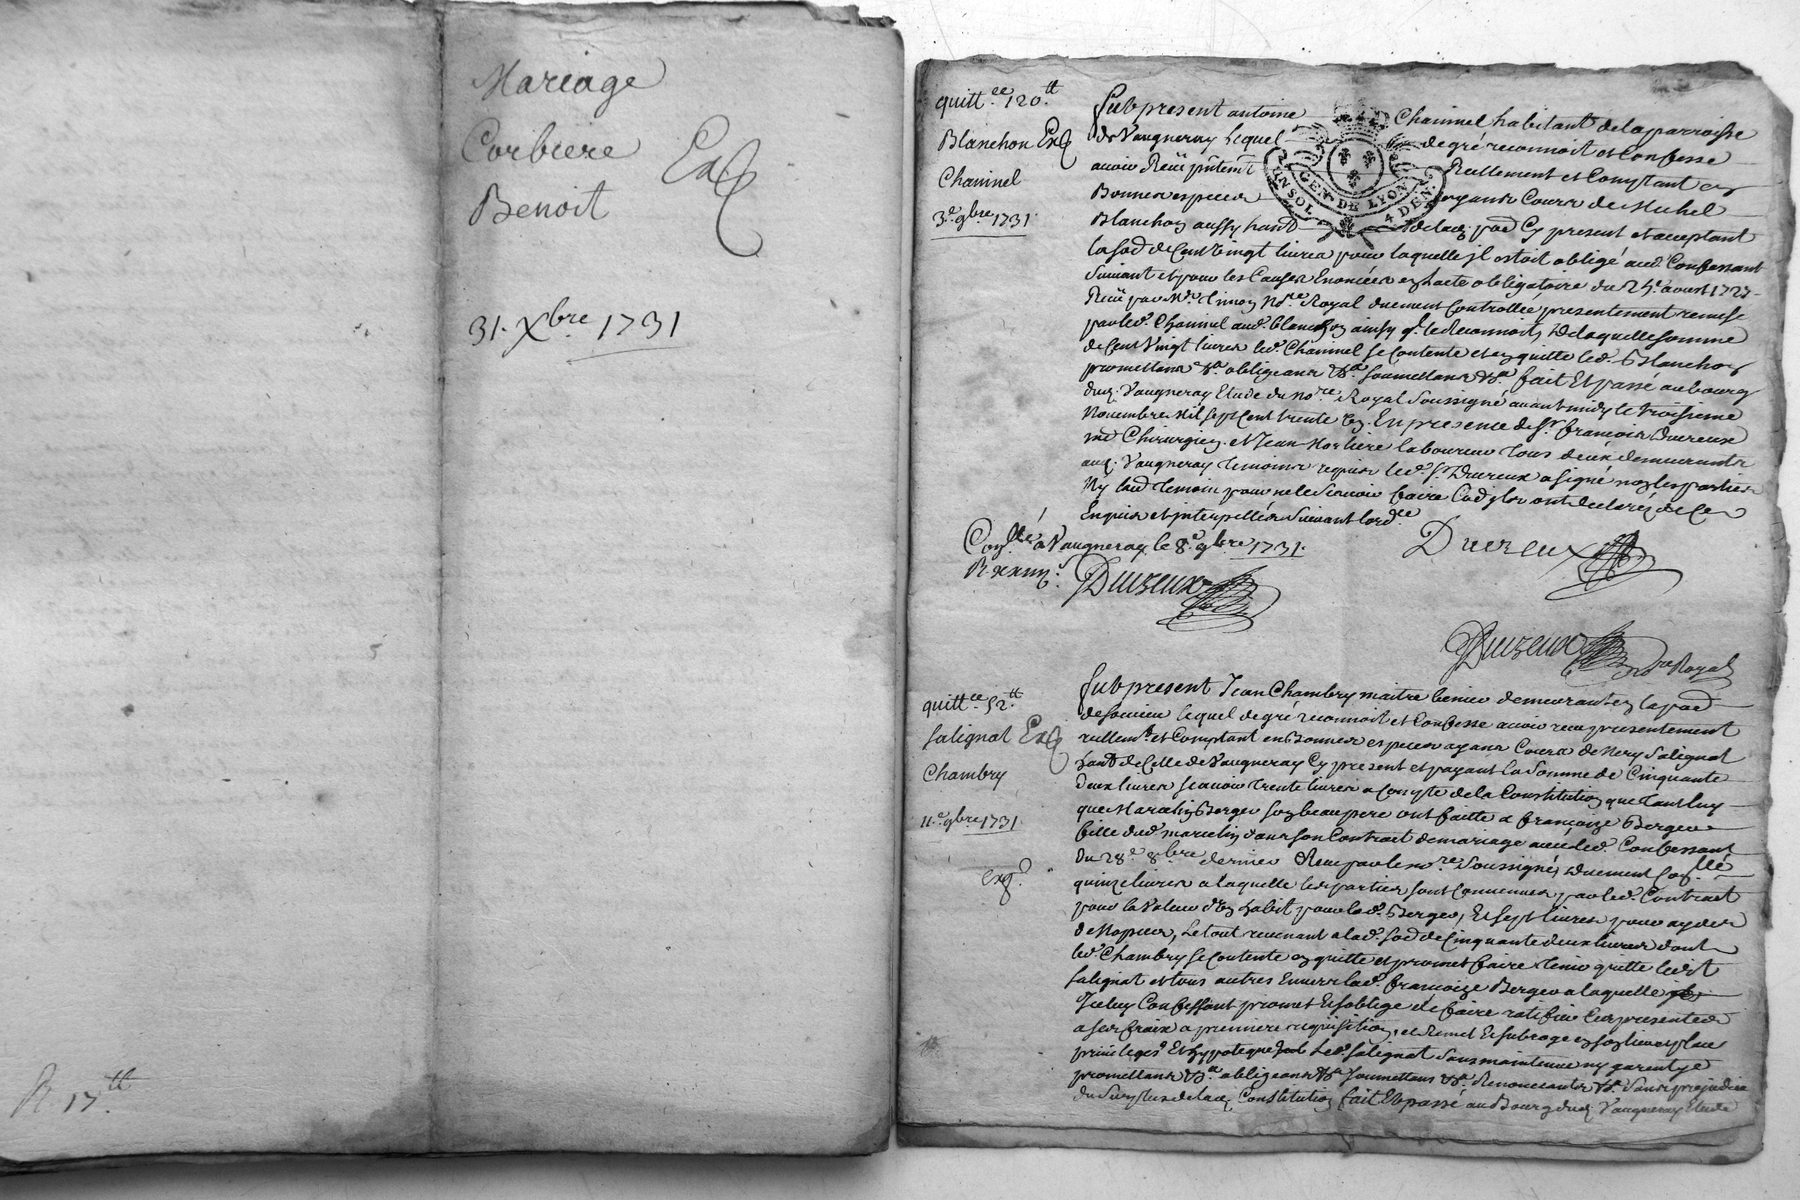 Mariage
Corbiere Exp
Benoit
31. Xbre 1731
R 17.tt
quitt.ce 120.tt
Blanchon Exp
Chaninel
3.e 9bre 1731.
GEN. DE LYON
UN SOL 4 DEN.
Sub present antoine Chaninel habitant de la parroisse
de Vaugneray lequel de gré reconnoit et Confesse
avoir Reçü pñtemt Reellement et Comptant en
Bonnes especes ayans Cours de Michel
Blanchon aussy habt de lad. parr Cy present et acceptant
la so&e de Cent vingt livres pour laquelle il estoit obligé aud. Confessant
Suivant et pour les Causes Enoncées en lacte obligatoire du 24.e aoust 1727
Reçü par Me. Simon No.re Royal duement Controllée presentement remise
par led. Chaninel aud. blanchon ainsy q.l le Reconnoit, de laquelle somme
de Cent Vingt livres led. Chaninel se Contente et en quitte led. Blanchon
promettans &a. obligeans &a. soumettans &a. fait Et passé au bourg
dud. Vaugneray Etude du no.re Royal Soussigné avant midy le troisieme
Novembre Mil sept Cent trente un. En presence de Sr. francois Ducreux
me Chirurgien et Jean Morliere laboureur tous deux demeurants
aud. Vaugneray temoins requis led. Sr. Ducreux a signé non les parties
Ny laud temoin pour ne le Scavoir faire Cod ils ont declaré de Ce
Enquis et interpellés Suivant lord.ce
Conllé a Vaugneray le 8.e 9bre 1731.
Ducreux
Duizeux
Duizeux no.re Royal
quitt.ce 52.tt
Salignat Exp
Chambry
11.e 9bre 1731
exp.e
Sub present Jean Chambry maitre demeurant en la parr
lequel de gré reconnoit et Confesse avoir reçu presentement
reellemt. et Comptant en Bonnes especes ayans Cours de Salignat
habt de Celle de Vaugneray Cy present et payant la Somme de Cinquante
deux livres scavoir trente livres a Compte de la Constitution que tant luy
que Marcelin Berger son beaupere ont faitte a françoize Berger
fille dud. marcelin dans son Contrat de mariage avec led. Confessant
du 28.e 8bre dernier Reçu par le no.re Soussigné, duement Conllé
quinze livres a laquelle les parties sont Convenues par led. Contract
pour la Valeur d'Un habit pour lad. Berger, Et sept livres pour ayder
de Nopces, le tout revenant a lad. so&e de Cinquante deux livres dont
led. Chambry se Contente en quitte et promet faire tenir quitte ledit
Salignat et tous autres Envers lad. francoize Berger a laquelle
Iceluy Confessant promet Et s'oblige de faire ratifier Ces presentes
a ses fraix a premiere requisition, et Remet Et subroge en son lieu et place
privileges Et hypoteque led. Salignat Sans maintenue ny garentye
promettans &a. obligeans &a. Soumettans &a. Renonceants &a. Sans prejudice
du Surplus de lad. Constitution fait Et passé au Bourg dud. Vaugneray Etude